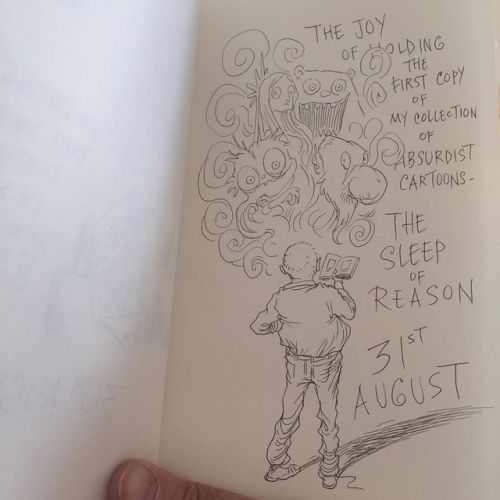 THE JOY
OF HOLDING
THE
FIRST COPY
OF
MY COLLECTION
OF
ABSURDIST
CARTOONS-
THE
SLEEP
OF
REASON
31ST
AUGUST